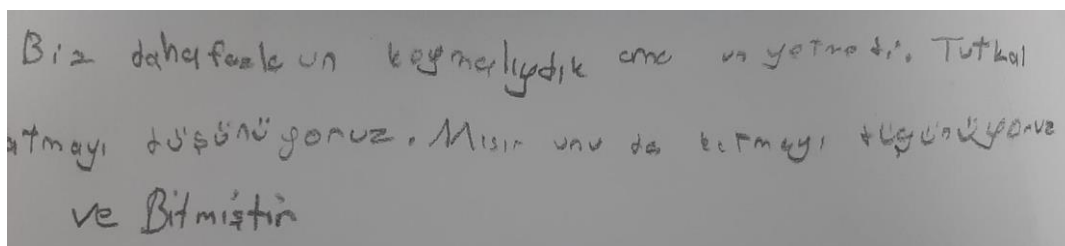 Biz daha fazla un koymalıydık ama un yetmedi. Tutkal
atmayı düşünüyoruz. Mısır unu da katmayı düşünüyoruz
ve Bitmiştir